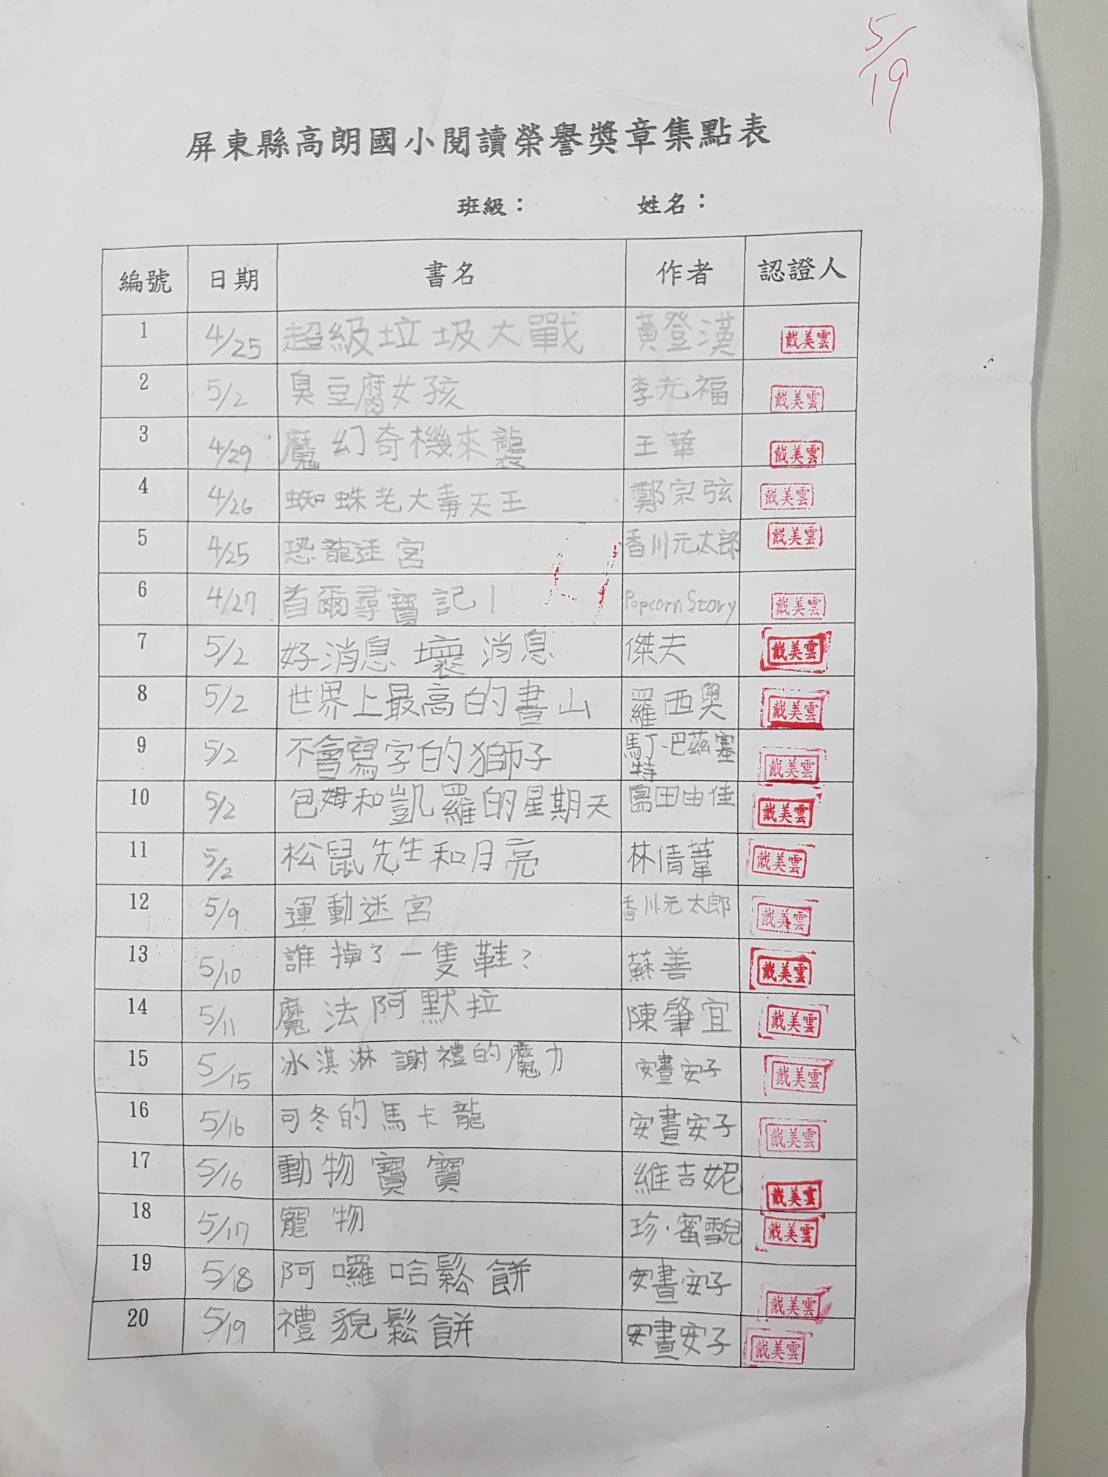 5/19
屏東縣高朗國小閱讀榮譽獎章集點表
班級： 姓名：
編號 日期 書名 作者 認證人
1 4/25 超級垃圾大戰 黃登漢 戴美雲
2 5/2 臭豆腐女孩 李光福 戴美雲
3 4/29 魔幻奇機來襲 王華 戴美雲
4 4/26 蜘蛛老大毒天王 鄭宗弦 戴美雲
5 4/25 恐龍迷宮 香川元太郎 戴美雲
6 4/27 首爾尋寶記1 Popcorn Story 戴美雲
7 5/2 好消息壞消息 傑夫 戴美雲
8 5/2 世界上最高的書山 羅西奧 戴美雲
9 5/2 不會寫字的獅子 馬丁·巴茲塞特 戴美雲
10 5/2 包姆和凱羅的星期天 島田由佳 戴美雲
11 5/2 松鼠先生和月亮 林倩葦 戴美雲
12 5/9 運動迷宮 香川元太郎 戴美雲
13 5/10 誰掉了一隻鞋? 蘇善 戴美雲
14 5/11 魔法阿默拉 陳肇宜 戴美雲
15 5/15 冰淇淋謝禮的魔力 安晝安子 戴美雲
16 5/16 可冬的馬卡龍 安晝安子 戴美雲
17 5/16 動物寶寶 維吉妮 戴美雲
18 5/17 寵物 珍·蜜雪兒 戴美雲
19 5/18 阿囉哈鬆餅 安晝安子 戴美雲
20 5/19 禮貌鬆餅 安晝安子 戴美雲